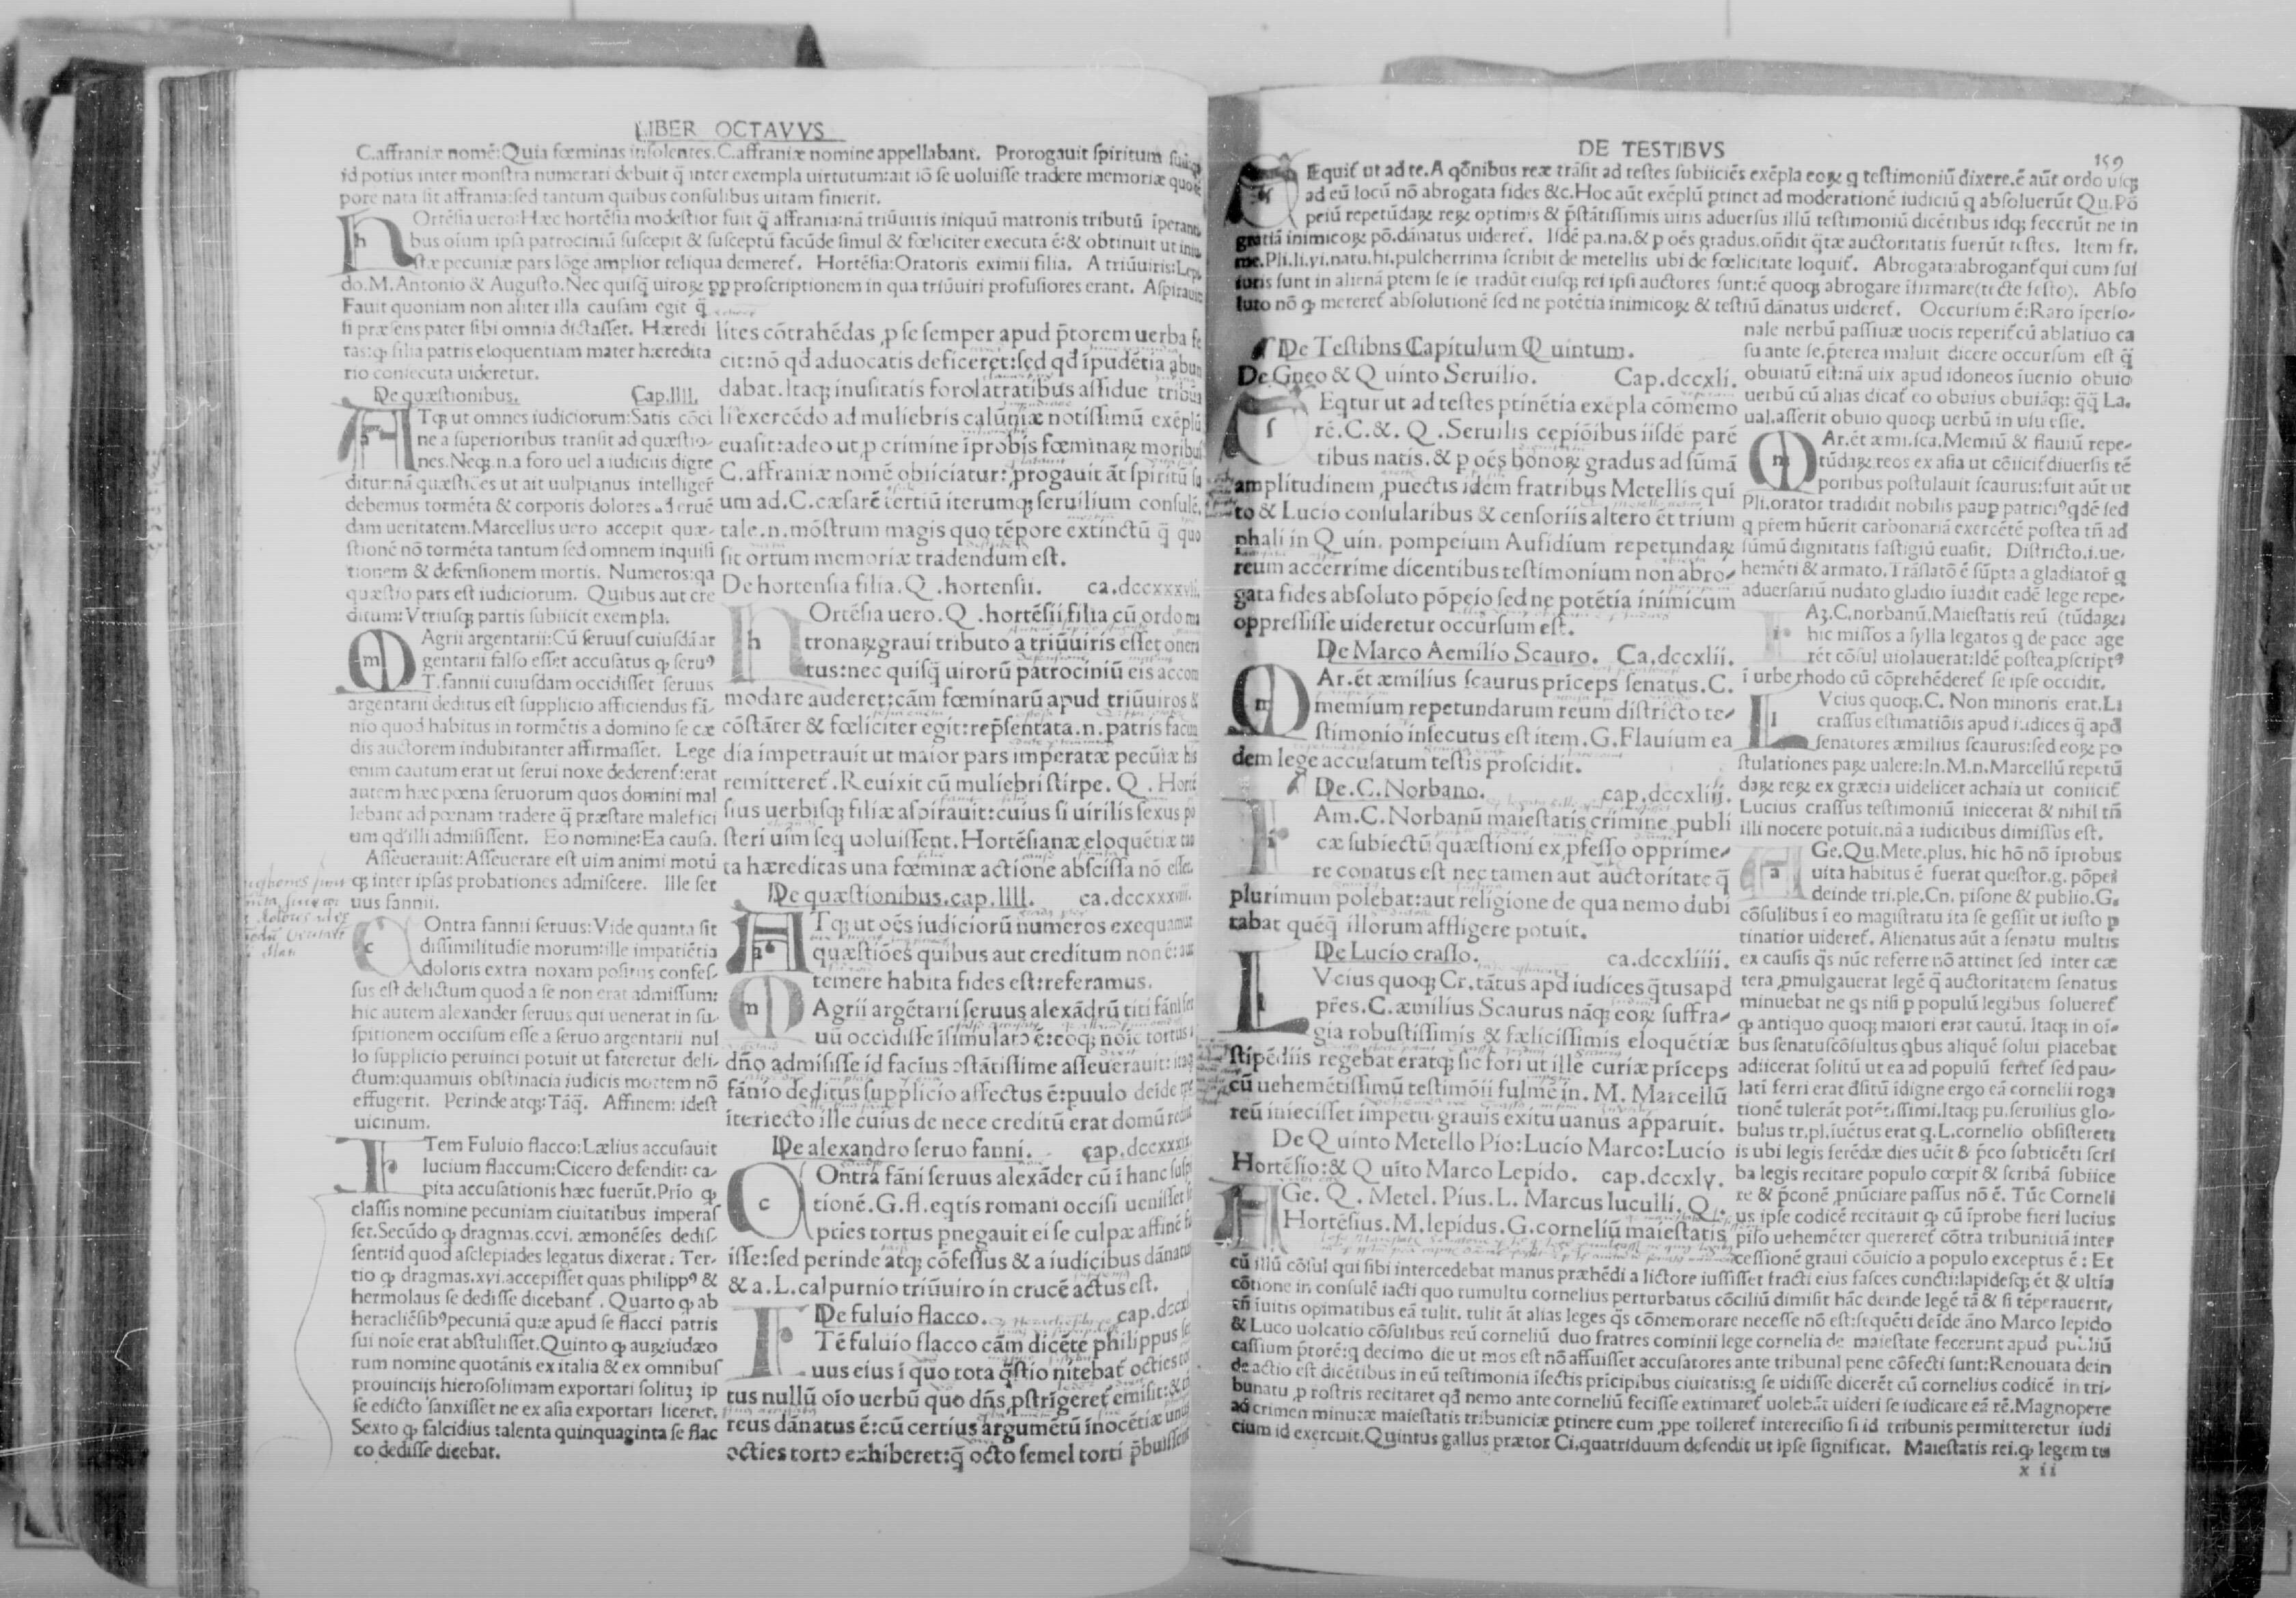 LIBER OCTAVVS
C.affraniæ nomē: Quia fœminas insolentes.C.affraniæ nomine appellabant. Prorogauit spiritum
id potius inter monstra numerati debuit q̄ inter exempla uirtutum:ait iō se uoluisse tradere memoriæ quo
pore nata sit affrania:sed tantum quibus consulibus uitam finierit.
Ortēsia uero:Hæc hortēsia modestior fuit q̄ affrania:nā triūuiris iniquū matronis tributū īperant
bus oīum ipsa patrociniū suscepit & susceptū facūde simul & fœliciter executa ē:& obtinuit ut
stæ pecuniæ pars lōge amplior reliqua demeret̄. Hortēsia:Oratoris eximii filia. A triūuiris:Lepi
do.M.Antonio & Augusto.Nec quisq̄ uiroꝝ ꝓp proscriptionem in qua triūuiri profusiores erant. Aspirauit
Fauit quoniam non aliter illa causam egit q̄
si præsens pater sibi omnia dictasset. Hæredi
tas:qꝫ filia patris eloquentiam mater hæredita
rio consecuta uideretur.
De quæstionibus. Cap.llll.
Tqꝫ ut omnes iudiciorum:Satis cōci
ne a superioribus transit ad quæstio-
nes.Neqꝫ.n.a foro uel a iudiciis digre
ditur:nā quæstiōes ut ait uulpianus intelliger̄
debemus tormēta & corporis dolores ad erue
dam ueritatem.Marcellus uero accepit quæ-
stionē nō tormēta tantum sed omnem inquisi
tionem & defensionem mortis. Numeros:qa
quæstio pars est iudiciorum. Quibus aut cre
ditum: Vtriusqꝫ partis subiicit exempla.
Agrii argentarii:Cū seruus cuiusdā ar
gentarii falso esset accusatus qꝫ seruꝰ
T.fannii cuiusdam occidisset seruus
argentarii deditus est supplicio afficiendus fā-
nio quod habitus in tormētis a domino se cæ
dis auctorem indubitanter affirmasset. Lege
enim cautum erat ut serui noxe dederent̄:erat
autem hæc pœna seruorum quos domini mal
lebant ad pœnam tradere q̄ præstare malefici
um qd̄ illi admisissent. Eo nomine:Ea causa.
Asseuerauit:Asseuerare est uim animi motū
qꝫ inter ipsas probationes admiscere. Ille ser
uus fannii.
Ontra fannii seruus:Vide quanta sit
dissimilitudie morum:ille impatiētia
doloris extra noxam positus confes-
sus est delictum quod a se non erat admissum:
hic autem alexander seruus qui uenerat in su-
spitionem occisum esse a seruo argentarii nul
lo supplicio peruinci potuit ut fateretur deli-
ctum:quamuis obstinacia iudicis mortem nō
effugerit. Perinde atqꝫ:Tāq̄. Affinem: idest
uicinum.
Tem Fuluio flacco:Lælius accusauit
lucium flaccum:Cicero defendit: ca-
pita accusationis hæc fuerūt.Prio qꝫ
classis nomine pecuniam ciuitatibus imperas
set.Secūdo qꝫ dragmas.ccvi. æmonēses dedis-
sent:id quod asclepiades legatus dixerat. Ter-
tio qꝫ dragmas.xvi.accepisset quas philippꝰ &
hermolaus se dedisse dicebant̄. Quarto qꝫ ab
heracliēsibꝰ pecuniā quæ apud se flacci patris
sui noīe erat abstulisset.Quinto qꝫ auꝝ iudæo
rum nomine quotānis ex italia & ex omnibus
prouinciis hierosolimam exportari solituꝫ ip
se edicto sanxisset ne ex asia exportari liceret.
Sexto qꝫ falcidius talenta quinquaginta se flac
co dedisse dicebat.
lites cōtrahēdas ꝓ se semper apud p̄torem uerba fe
cit:nō qd̄ aduocatis deficeret:sed qd̄ īpudētia abun
dabat.Itaqꝫ inusitatis foro latratibus assidue tribu
li exercēdo ad muliebris calūniæ notissimū exēplū
euasit:adeo ut ꝓ crimine īprobis fœminaꝝ moribus
C.affraniæ nomē obiiciatur: ꝓrogauit āt spiritū su
um ad.C.cæsarē tertiū iterumqꝫ seruilium consulē.
tale.n.mōstrum magis quo tēpore extinctū q̄ quo
sit ortum memoriæ tradendum est.
De hortensia filia.Q.hortensii. ca.dccxxxvii.
Ortēsia uero.Q.hortēsii filia cū ordo ma
tronaꝝ graui tributo a triūuiris esset onera
tus:nec quisq̄ uirorū patrociniū eis accom
modare auderet:cām fœminarū apud triūuiros &
cōstāter & fœliciter egit:rep̄sentata.n.patris facun
dia impetrauit ut maior pars imperatæ pecuiæ his
remitteret̄.Reuixit cū muliebri stirpe. Q. Horté
sius uerbisqꝫ filiæ aspirauit:cuius si uirilis sexus po
steri uim seq uoluissent.Hortēsianæ eloquētiæ tan
ta hæreditas una fœminæ actione abscissa nō esset.
De quæstionibus.cap.llll. ca.dccxxxviii.
Tqꝫ ut oēs iudiciorū numeros exequamur
quæstiōes quibus aut creditum non ē: aut
temere habita fides est:referamus.
Agrii argētarii seruus alexādrū titi fānii ser
uū occidisse īsimulatꝰ ē:eoqꝫ noīe tortus a
dn̄o admisisse id facius cōstātissime asseuerauit: itaqꝫ
fānio deditus supplicio affectus ē:puulo deīde tpe
īteriecto ille cuius de nece creditū erat domū rediit
De alexandro seruo fanni. cap.dccxxxix.
Ontra fāni seruus alexāder cū ī hanc suspi
tionē.G.fl.eqtis romani occisi uenisset
pties tortus pnegauit ei se culpæ affinē fu
isse:sed perinde atqꝫ cōfessus & a iudicibus dānatus
& a.L.calpurnio triūuiro in crucē actus est.
De fuluio flacco. cap.dccxl
Tē fuluio flacco cām dicēte philippus ser
uus eius ī quo tota q̄stio nitebat̄ octies tor
tus nullū oīo uerbū quo dn̄s pstrīgeret̄ emisit:& tn̄
reus dānatus ē:cū certius argumētū inocētiæ unus
octies tortꝰ exhiberet:q̄ octo semel torti p̄buissent
DE TESTIBVS
159
Equit̄ ut ad te.A qōnibus reæ trāsit ad testes subiiciēs exēpla eoꝝ q testimoniū dixere.ē aūt ordo usqꝫ
ad eū locū nō abrogata fides &c.Hoc aūt exēplū ptinet ad moderationē iudiciū q absoluerūt Qu.Pō
peiū repetūdaꝝ reꝝ optimis & p̄stātissimis uiris aduersus illū testimoniū dicētibus idqꝫ fecerūt ne in
gratiā inimicoꝝ pō.dānatus uideret̄. Iisdē pa.na.& p oēs gradus.on̄dit q̄tæ auctoritatis fuerūt testes. Item fr.
me.Pli.li.vi.natu.hi.pulcherrima scribit de metellis ubi de fœlicitate loquit̄. Abrogata:abrogant̄ qui cum sui
iuris sunt in alienā ptem se se tradūt eiusqꝫ rei ipsi auctores sunt:ē quoqꝫ abrogare īfirmare(teste festo). Abso
luto nō qꝫ mereret̄ absolutionē sed ne potētia inimicoꝝ & testiū dānatus uideret̄. Occurium ē:Raro īperso-
De Testibus Capitulum Quintum.
De Gneo & Quinto Seruilio. Cap.dccxli.
Eqtur ut ad testes ptinētia exēpla cōmemo
rē.C.&. Q.Seruilis cepiōibus iisdē parē
tibus natis.& p oēs honoꝝ gradus ad sūmā
amplitudinem ꝓuectis idem fratribus Metellis qui
to & Lucio consularibus & censoriis altero ēt trium
phali in Quin. pompeium Aufidium repetundaꝝ
reum accerrime dicentibus testimonium non abro-
gata fides absoluto pōpeio sed ne potētia inimicum
oppressisse uideretur occursum est.
De Marco Aemilio Scauro. Ca.dccxlii.
Ar.ēt æmilius scaurus prīceps senatus.C.
memium repetundarum reum districto te-
stimonio insecutus est item.G.Flauium ea
dem lege accusatum testis proscidit.
De.C.Norbano. cap.dccxliii.
Am.C.Norbanū maiestatis crimine publi
cæ subiectū quæstioni ex ꝓfesso opprime-
re conatus est nec tamen aut auctoritate q̄
plurimum polebat:aut religione de qua nemo dubi
tabat quēq̄ illorum affligere potuit.
De Lucio crasso. ca.dccxliiii.
Vcius quoqꝫ Cr.tātus apd iudices q̄tus apd
pr̄es.C.æmilius Scaurus nāqꝫ eoꝝ suffra-
gia robustissimis & fælicissimis eloquētiæ
stipēdiis regebat eratqꝫ sic fori ut ille curiæ prīceps
cū uehemētissimū testimōii fulmē in. M. Marcellū
reū iniecisset impetu grauis exitu uanus apparuit.
De Quinto Metello Pio:Lucio Marco:Lucio
Hortēsio:& Quīto Marco Lepido. cap.dccxlv.
Ge. Q. Metel. Pius.L. Marcus luculli. Q.
Hortēsius.M.lepidus.G.corneliū maiestatis
nale nerbū passiuæ uocis reperit̄ cū ablatiuo ca
su ante se.p̄terea maluit dicere occursum est q̄
obuiatū est:nā uix apud idoneos iuenio obuio
uerbū cū alias dicat̄ eo obuius obuiāqꝫ: q̄q̄ La.
ual.asserit obuio quoqꝫ uerbū in usu esse.
Ar.ēt æmi.sca.Memiū & flauiū repe-
tūdaꝝ reos ex asia ut cōiicit̄ diuersis tē
poribus postulauit scaurus:fuit aūt ut
Pli.orator tradidit nobilis paup patriciꝰ qdē sed
q pr̄em hūerit carbonariā exercētē postea tn̄ ad
sūmū dignitatis fastigiū euasit. Districto.i.ue-
hemēti & armato.Trāslatō ē sūpta a gladiator̄ q
aduersariū nudato gladio iuadit eadē lege repe-
Aꝫ.C.norbanū.Maiestatis reū (tūdaꝝ.
hic missos a sylla legatos q de pace age
rēt cōsul uiolauerat:Idē postea ꝓscriptꝰ
ī urbe rhodo cū cōprehēderet̄ se ipse occidit.
Vcius quoqꝫ.C. Non minoris erat.Li
crassus estimatiōis apud iudices q̄ apd
senatores æmilius scaurus:sed eoꝝ po
stulationes paꝝ ualere:In.M.n.Marcellū repetū
daꝝ reꝝ ex græcia uidelicet achaia ut coniicit̄
Lucius crassus testimoniū iniecerat & nihil tn̄
illi nocere potuit.nā a iudicibus dimissus est.
Ge.Qu.Mete.plus. hic hō nō īprobus
uita habitus ē fuerat questor.g. pōpei
deinde tri.ple.Cn. pisone & publio.G.
cōsulibus ī eo magistratu ita se gessit ut iusto p
tinatior uideret̄. Alienatus aūt a senatu multis
ex causis q̄s nūc referre nō attinet sed inter cæ
tera ꝓmulgauerat legē q̄ auctoritatem senatus
minuebat ne qs nisi p populū legibus solueret̄
qꝫ antiquo quoqꝫ maiori erat cautū. Itaqꝫ in oī-
bus senatuscōsultus qbus aliquē solui placebat
adiicerat solitū ut ea ad populū ferret̄ sed pau-
lati ferri erat d̄sitū īdigne ergo eā cornelii roga
tionē tulerāt potētissimi.Itaqꝫ pu.seruilius glo-
bulus tr.pl.iuētus erat q.L.cornelio obsisteret:
is ubi legis ferēdæ dies uēit & p̄co subticēti scri
ba legis recitare populo cœpit & scribā subiice
re & p̄conē ꝓnūciare passus nō ē. Tūc Corneli
us ipse codicē recitauit qꝫ cū īprobe fieri lucius
piso uehemēter quereret̄ cōtra tribunitiā inter
cessionē graui cōuicio a populo exceptus ē: Et
cū illū cōsul qui sibi intercedebat manus præhēdi a lictore iussisset fracti eius fasces cuncti:lapidesqꝫ ēt & ultīa
cōtione in consulē iacti quo tumultu cornelius perturbatus cōciliū dimisit hāc deinde legē tā & si tēperauerit,
tn̄ iuitis opimatibus eā tulit. tulit āt alias leges q̄s cōmemorare necesse nō est:sequēti deīde āno Marco lepido
& Luco uolcatio cōsulibus reū corneliū duo fratres cominii lege cornelia de maiestate fecerunt apud publiū
cassium p̄torē:q decimo die ut mos est nō affuisset accusatores ante tribunal pene cōfecti sunt:Renouata dein
de actio est dicētibus in eū testimonia īfectis prīcipibus ciuitatis:q se uidisse dicerēt cū cornelius codicē in tri-
bunatu ꝓ rostris recitaret qd̄ nemo ante corneliū fecisse extimaret̄ uolebāt uideri se iudicare eā rē.Magnopere
ad crimen minutæ maiestatis tribuniciæ ptinere cum ꝓpe tolleret̄ intercisio si id tribunis permitteretur iudi
cium id exercuit.Quintus gallus prætor Ci.quatriduum defendit ut ipse significat. Maiestatis rei.qꝫ legem tu
x ii